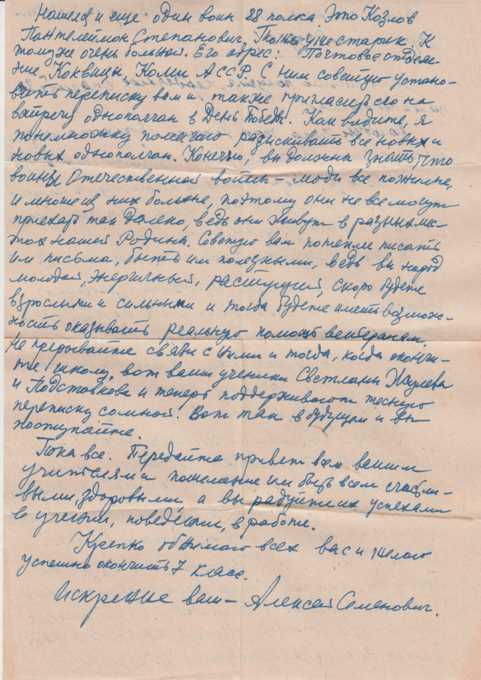 Нашелся и еще один воин 28 полка. Это Козлов
Пантелеймон Степанович, тоже уже старик. К
тому же очень больной. Его адрес: Почтовое отделе-
ние, Коквицы, Коми АССР. С ним советую устано-
вить переписку вам и также пригласить его на
встречу однополчан в День Победы. Как видите, я
понемножку помогаю разыскивать все новых и
новых однополчан. Конечно, вы должны знать, что
воины Отечественной войны - люди все пожилые,
и многие из них больные, поэтому они не все могут
приехать так далеко, ведь они живут в разных мес-
тах нашей Родины. Советую вам почаще писать
им письма, быть им полезными, ведь вы народ
молодой, энергичный, растущий, скоро будете
взрослыми и сильными и тогда будете иметь возмож-
ность оказывать реальную помощь ветеранам.
Не прерывайте связи с ними и тогда, когда окончи-
те школу, вот ваши ученики Светлана
и и теперь поддерживают тесную
переписку со мной. Вот так в будущем и вы
поступайте.
Пока все. Передайте привет всем вашим
учителям и пожелание им быть всем счастли-
выми, здоровыми, а вы радуйте их успехами
в учении, поведении, в работе.
Крепко обнимаю всех вас и желаю
успешно окончить 7 класс.
Искренне ваш - Алексей Семенович.